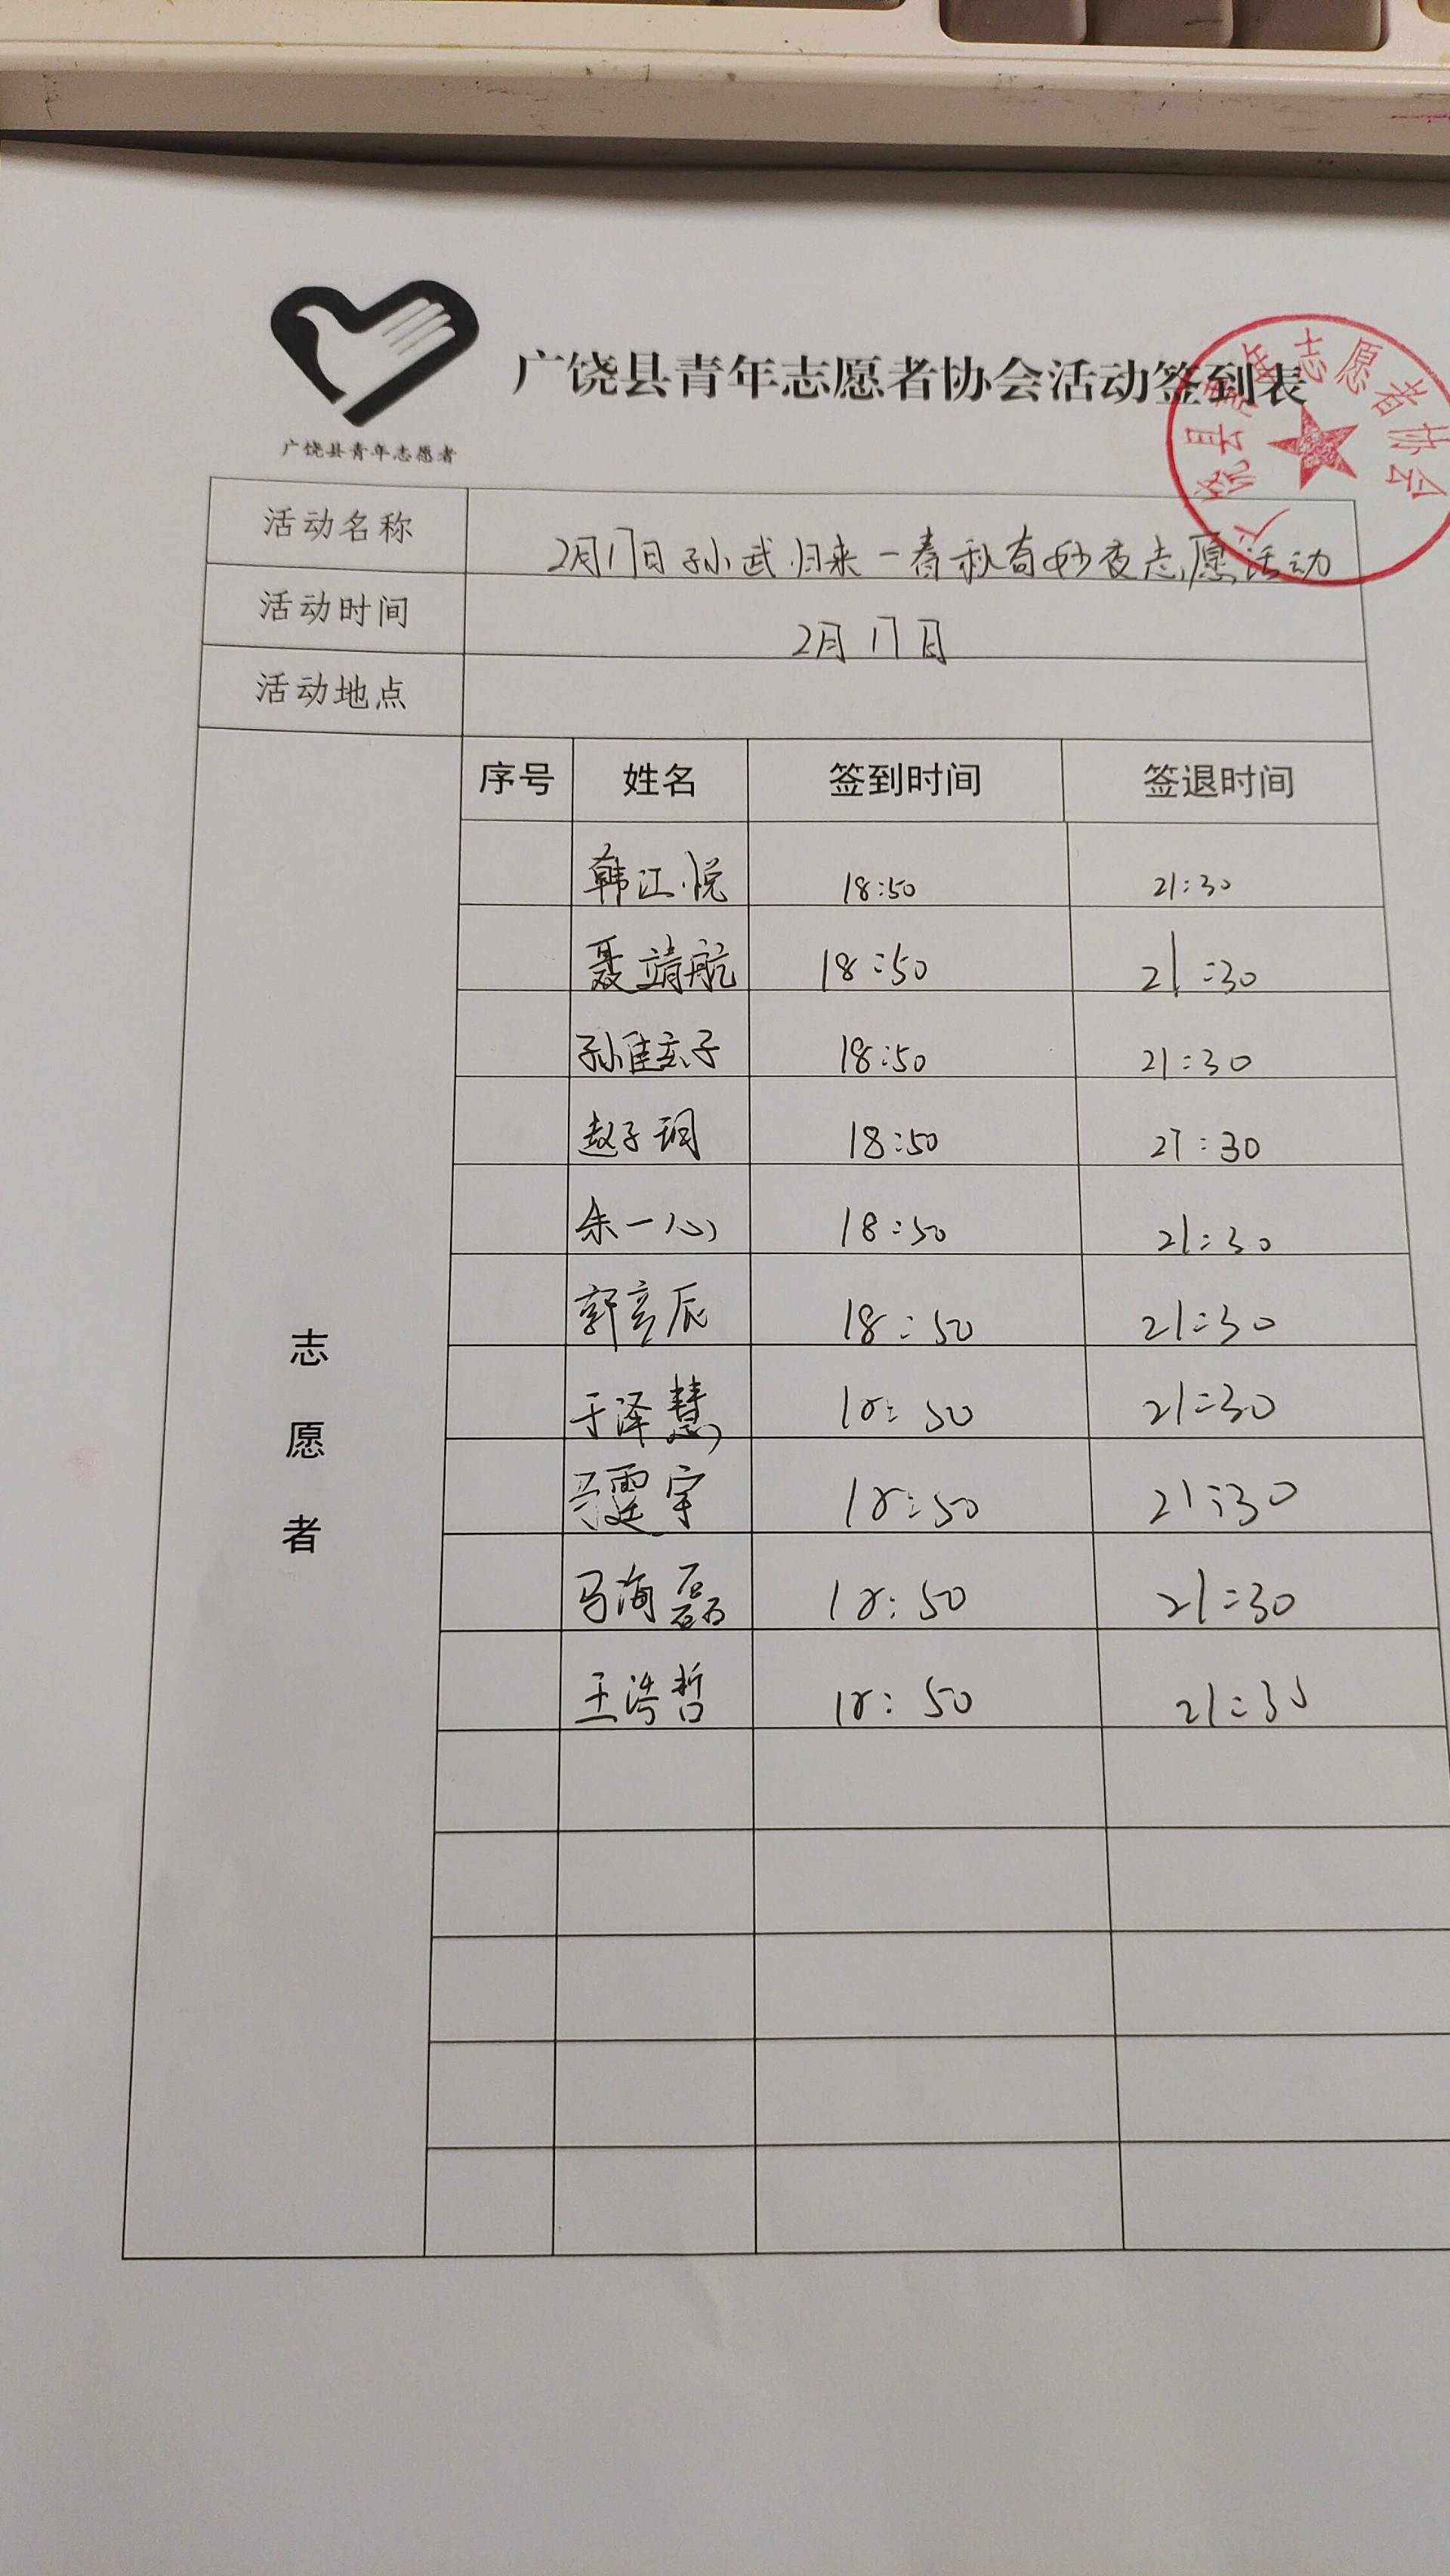 广饶县青年志愿者协会活动签到表
广饶县青年志愿者协会
广饶县青年志愿者
活动名称 2月17日孙武归来一春秋奇妙夜志愿活动
活动时间 2月17日
活动地点
序号 姓名 签到时间 签退时间
韩江悦 18:50 21:30
聂靖航 18:50 21:30
孙佳玄子 18:50 21:30
赵子珂 18:50 21:30
朱一心 18:50 21:30
郭彦辰 18:50 21:30
于泽慧 18:50 21:30
马霆宇 18:50 21:30
马海磊 18:50 21:30
王浩哲 18:50 21:30
志
愿
者